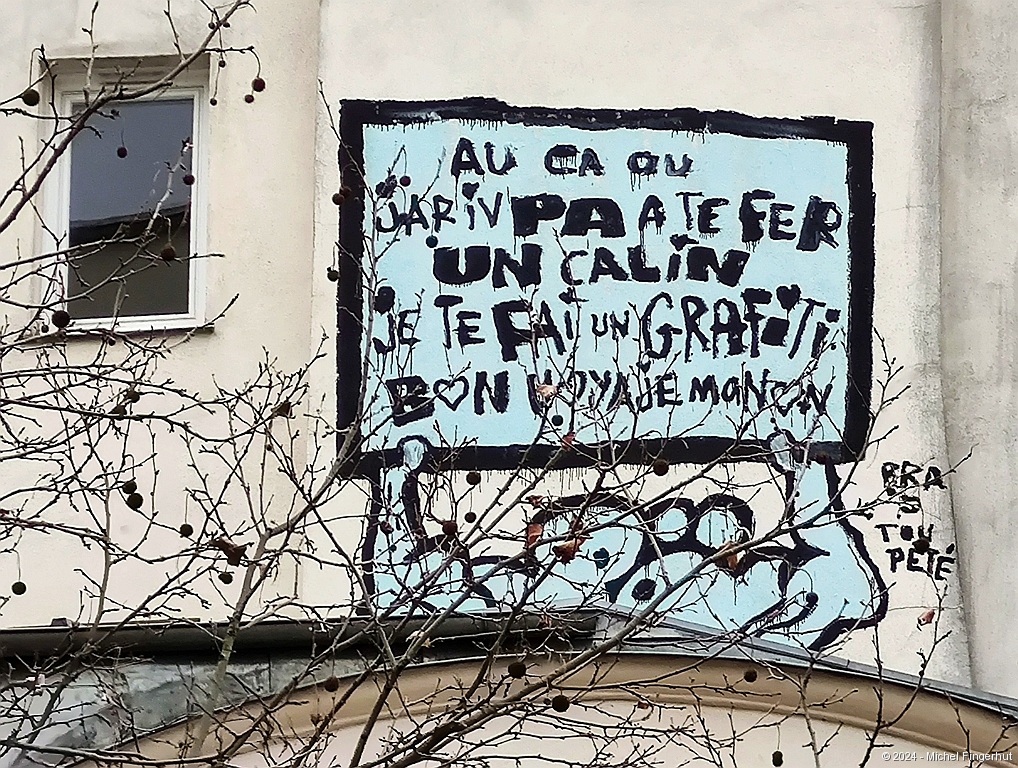 AU CA OU
JARiV PA A TE FER
UN CALiN
JE TE FAi UN GRAFiTi
BON VOYAJE MANON
BRA
S
TOU
PETÉ
© 2024 - Michel Fingerhut